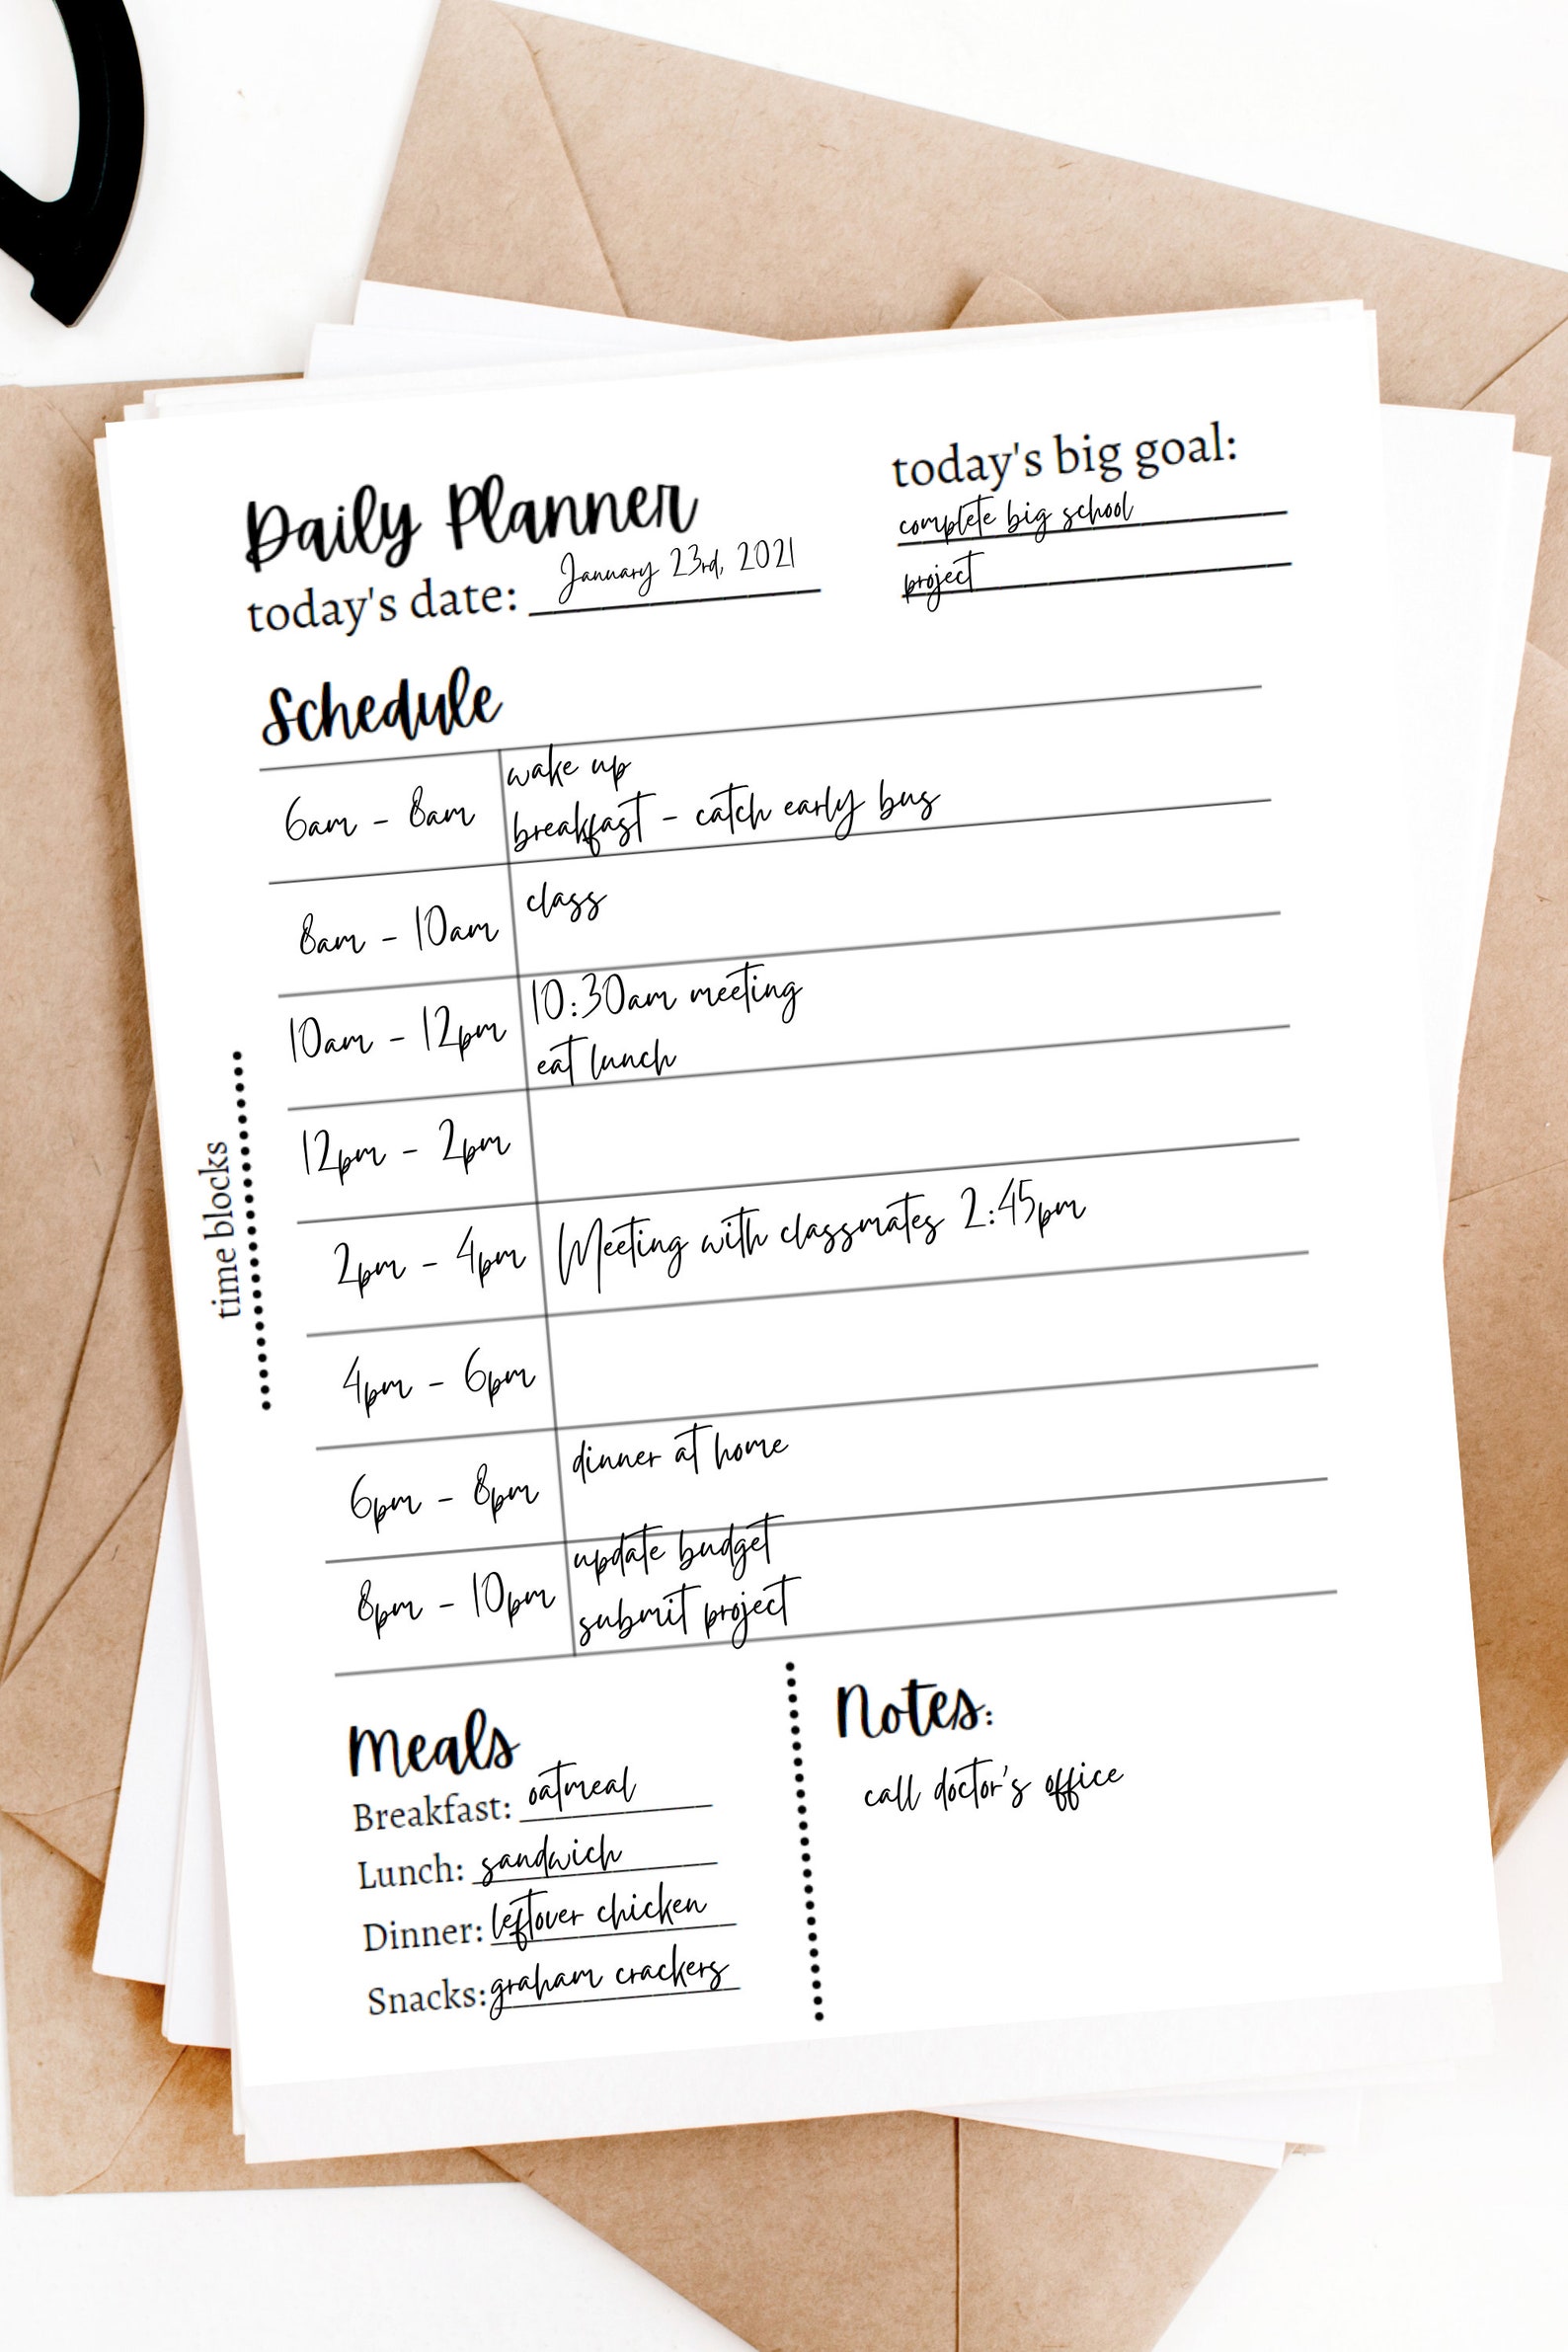 Daily Planner
today's date: January 23rd, 2021
today's big goal:
complete big school
project
Schedule
time blocks
6am - 8am
wake up
breakfast - catch early bus
8am - 10am
class
10am - 12pm
10:30am meeting
eat lunch
12pm - 2pm
2pm - 4pm
Meeting with classmates 2:45pm
4pm - 6pm
6pm - 8pm
dinner at home
8pm - 10pm
update budget
submit project
Meals
Breakfast: oatmeal
Lunch: sandwich
Dinner: leftover chicken
Snacks: graham crackers
Notes:
call doctor's office